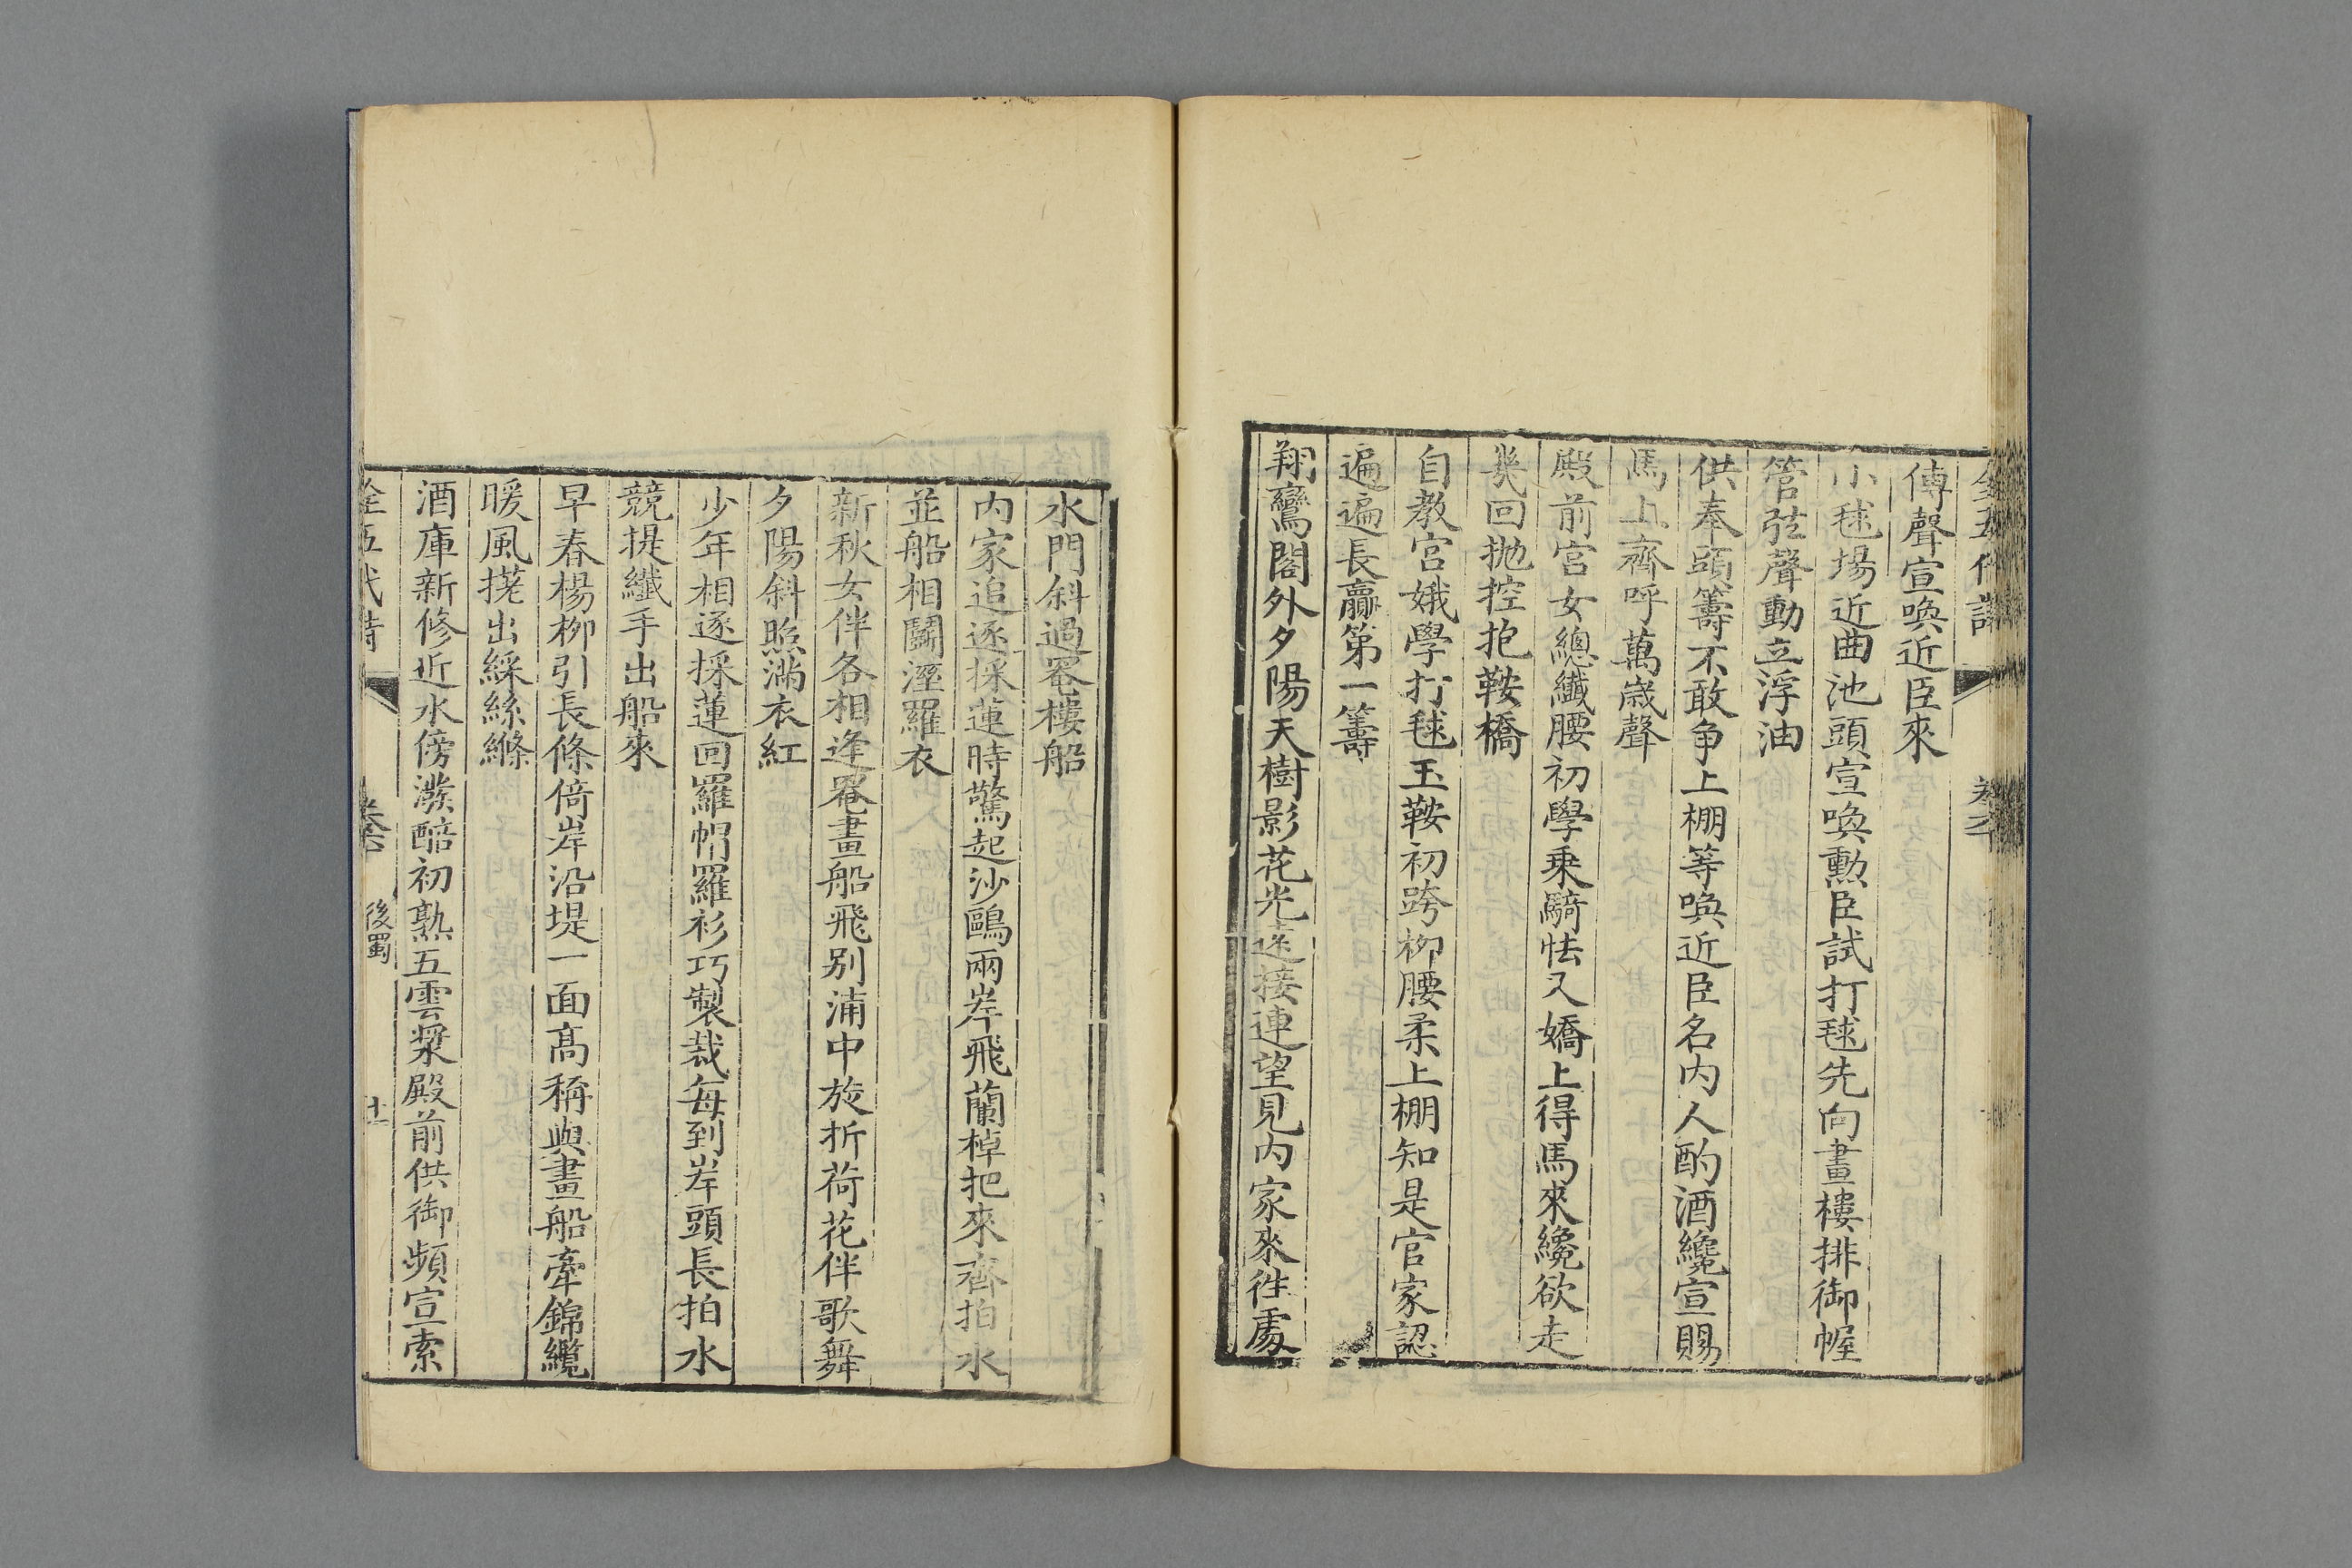 傳聲宣喚近臣來
小毬場近曲池頭宣喚勲臣試打毬先向畫樓排御幄
管弦聲動立浮油
供奉頭籌不敢争上棚等喚近臣名内人酌酒纔宣賜
馬上齊呼萬歳聲
殿前宫女總纖腰初學乗騎怯又嬌上得馬來纔欲走
幾回抛控抱鞍橋
自教宫娥學打毬玉鞍初跨柳腰柔上棚知是官家認
遍遍長贏第一籌
翔鸞閣外夕陽天樹影花光遠接連望見内家來往處
水門斜過罨樓船
内家追逐採蓮時驚起沙鷗兩岸飛蘭棹把來齊拍水
並船相鬭溼羅衣
新秋女伴各相逢罨畫船飛别浦中旋折荷花伴歌舞
夕陽斜照滿衣紅
少年相逐採蓮回羅帽羅衫巧製裁每到岸頭長拍水
競提纖手出船來
早春楊柳引長條倚岸沿堤一面髙稱與畫船牽錦纜
暖風搓出綵絲縧
酒庫新修近水傍潑醅初熟五雲漿殿前供御頻宣索
全五代詩
後蜀
十一